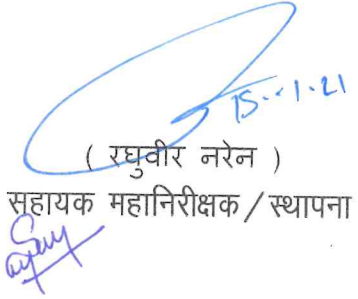 15.-1.21
( रघुवीर नरेन )
सहायक महानिरीक्षक / स्थापना